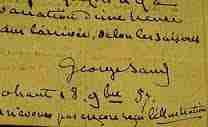 variation d'une heure
dans l'arrivée, selon les saisons
George Sand
Nohant 18. 9bre 57
pas encore reçu l'Illustration